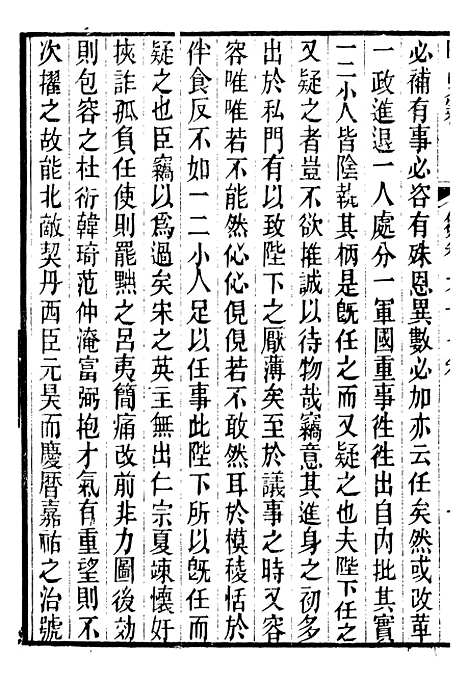 必補有事必容有殊恩異數必加亦云任矣然或改革
一政進退一人處分一軍國重事徃徃出自内批其實
一二小人皆陰執其柄是旣任之而又疑之也夫陛下任之
又疑之者豈不欲推誠以待物哉竊意其進身之初多
出於私門有以致陛下之厭薄矣至於議事之時又容
容唯唯若不能然伈伈俔俔若不敢然耳於模稜恬於
伴食反不如一二小人足以任事此陛下所以旣任而
疑之也臣竊以爲過矣宋之英主無出仁宗夏竦懷奸
挾詐孤負任使則罷黜之呂夷簡痛改前非力圖後効
則包容之杜衍韓琦范仲淹富弼抱才氣有重望則不
次擢之故能北敵契丹西臣元昊而慶曆嘉祐之治號